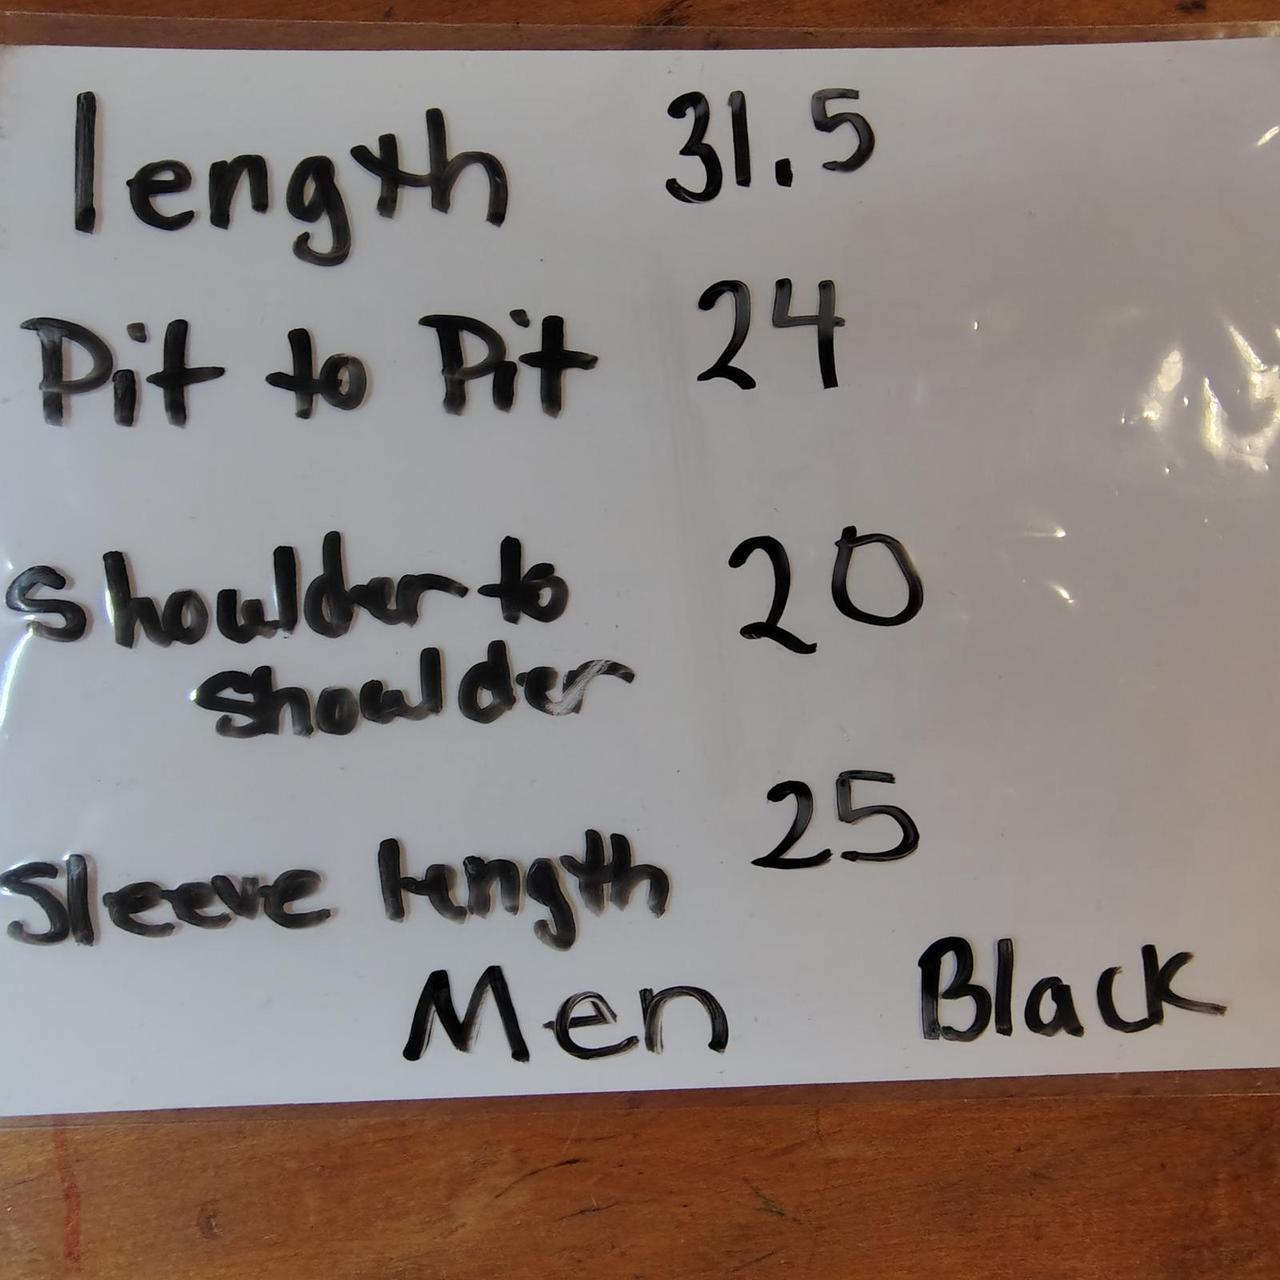 length 31.5
Pit to Pit 24
Shoulder to 20
shoulder
Sleeve length 25
Men Black